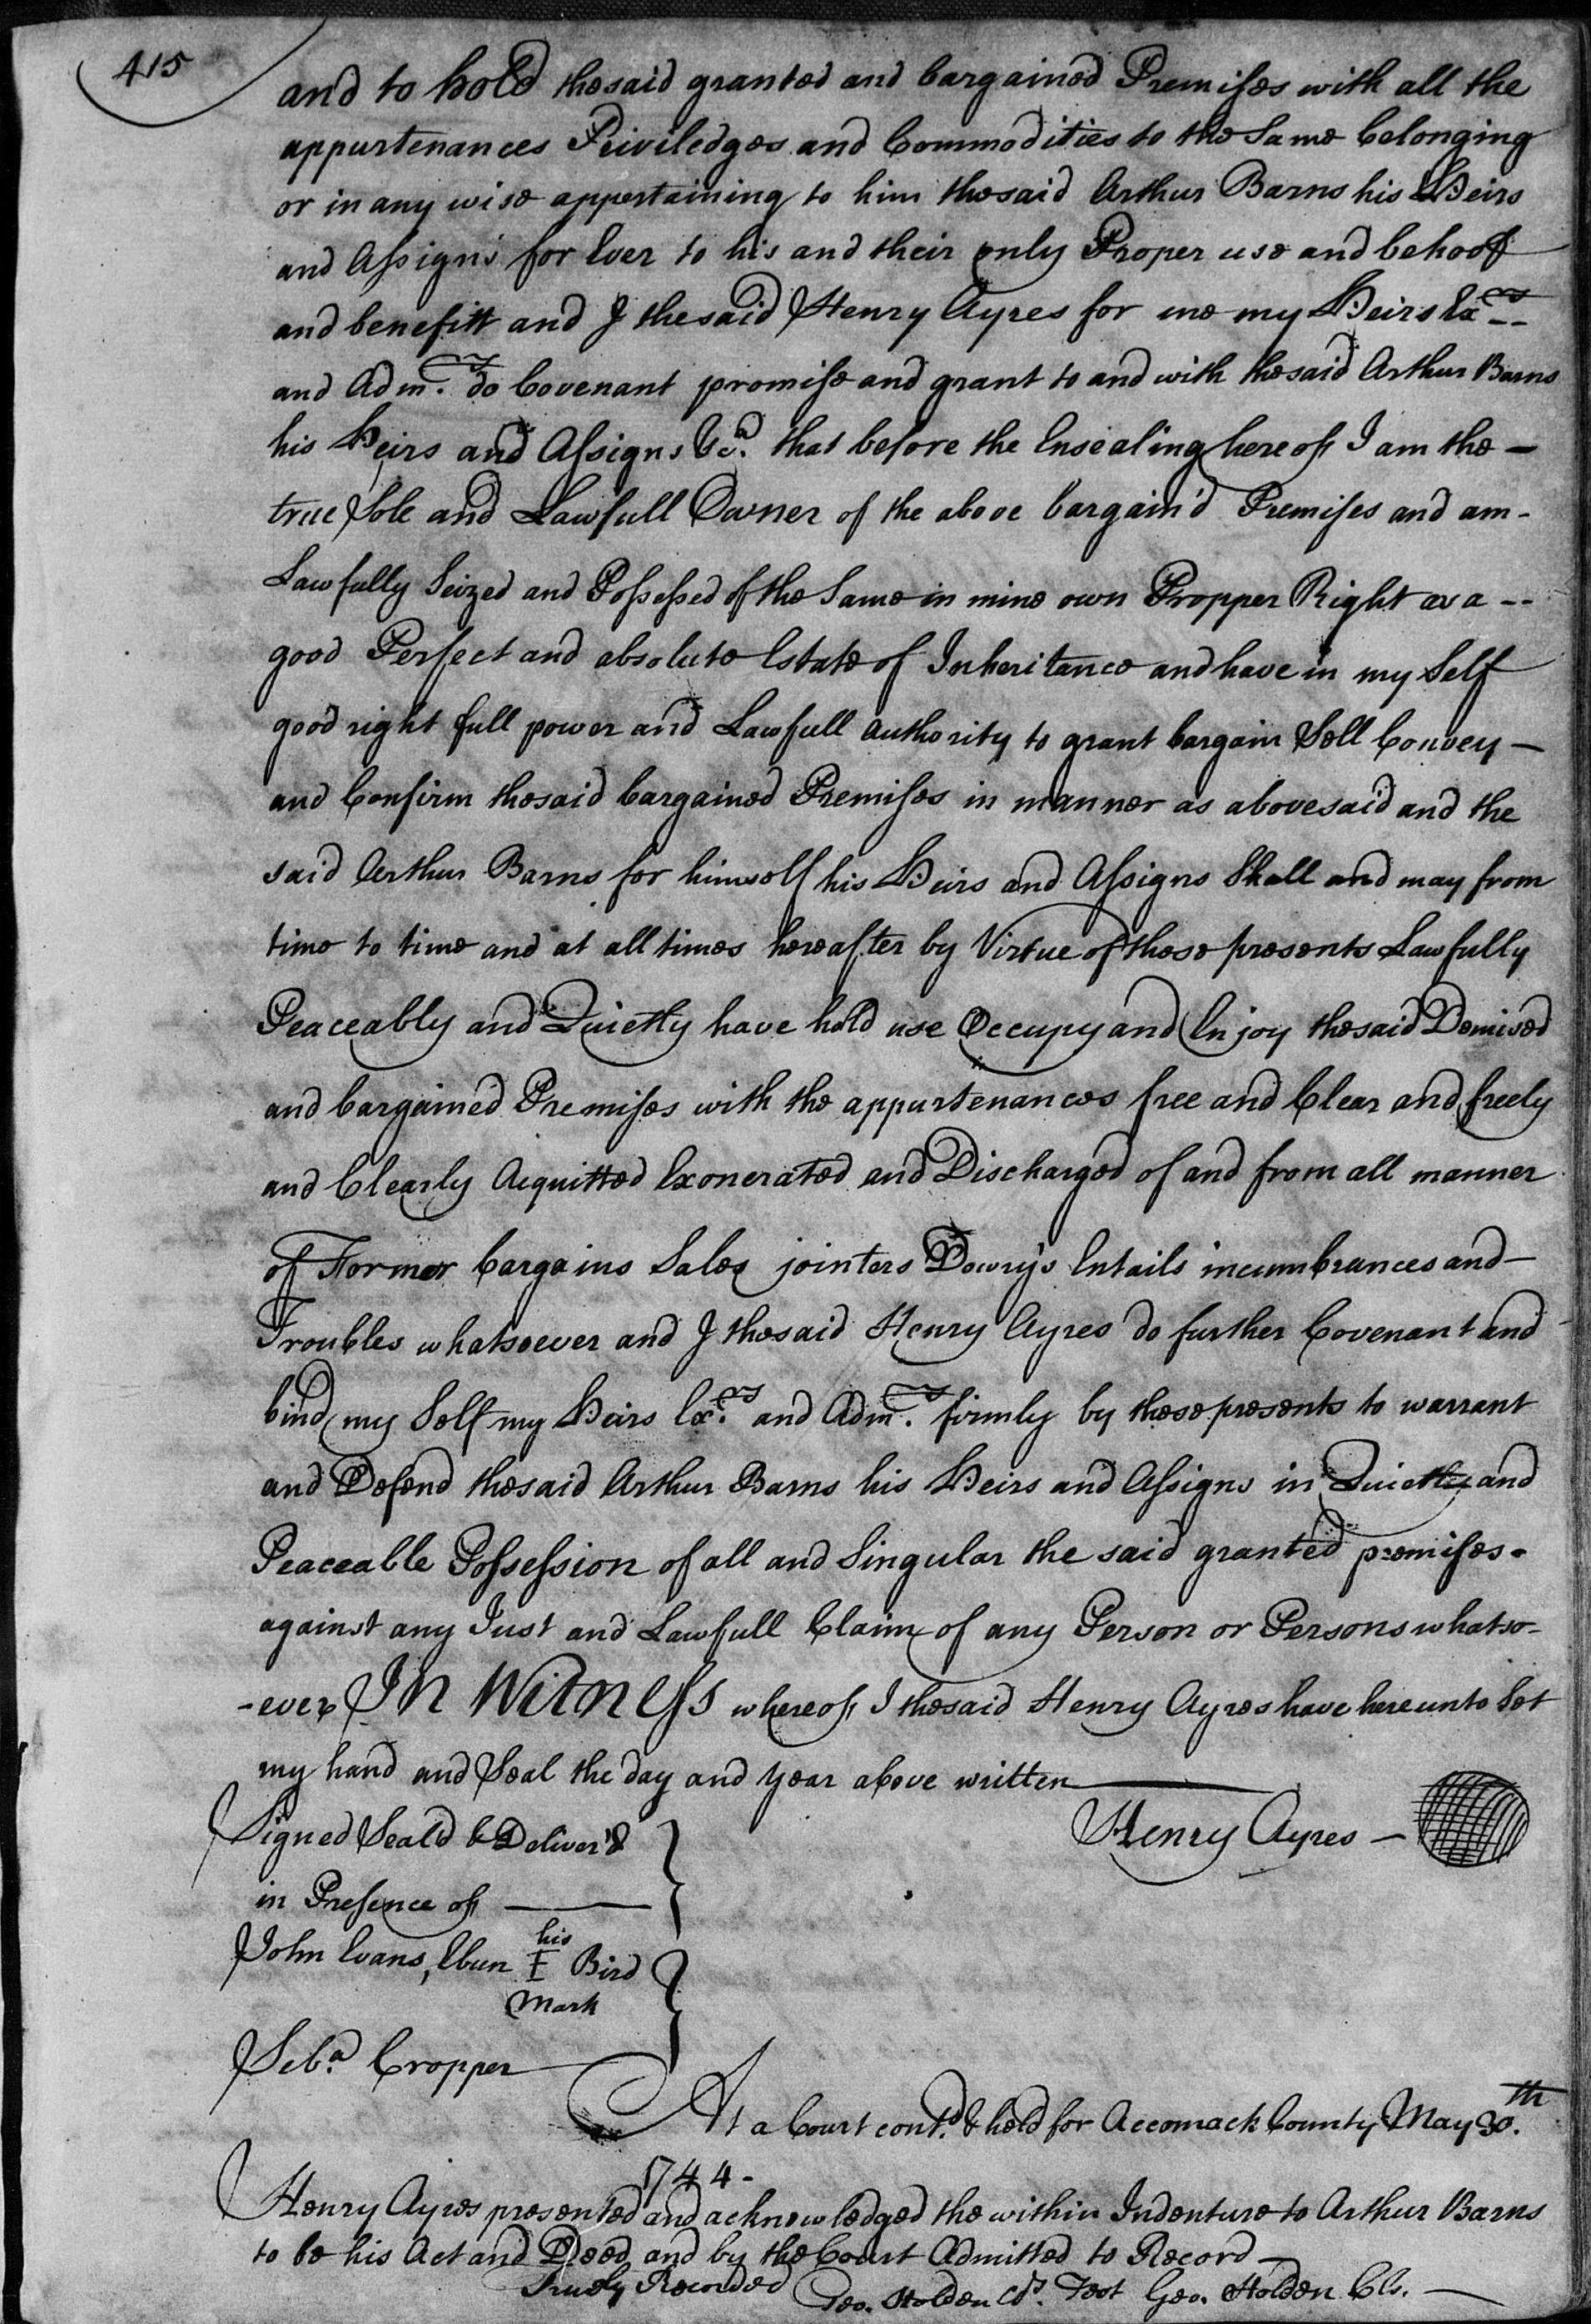 415
and to hold the said granted and bargained Premises with all the
appurtenances Priviledges and Commodities to the Same belonging
or in any wise appertaining to him the said Arthur Barns his Heirs
and Assigns for Ever to his and their only Proper use and behoof
and benefitt and I the said Henry Ayres for me my Heirs Exrs --
and Admrs. do Covenant promise and grant to and with the said Arthur Barns
his Heirs and Assigns &ca. that before the Ensealing hereof I am the -
true Sole and Lawfull Owner of the above bargain'd Premises and am -
Lawfully Seized and Possessed of the Same in mine own Propper Right as a --
good Perfect and absolute Estate of Inheritance and have in my Self
good right full power and Lawfull authority to grant bargain Sell Convey -
and Confirm the said bargained Premises in manner as abovesaid and the
said Arthur Barns for himself his Heirs and Assigns Shall and may from
time to time and at all times hereafter by Virtue of these presents Lawfully
Peaceably and Quietly have hold use Occupy and Enjoy the said Demised
and bargained Premises with the appurtenances free and Clear and freely
and Clearly Acquitted Exonerated and Discharged of and from all manner
of Former bargains Sales jointers Dowry's Entails incumbrances and -
Troubles whatsoever and I the said Henry Ayres do further Covenant and
bind my Self my Heirs Exrs. and Admrs. firmly by these presents to warrant
and Defend the said Arthur Barns his Heirs and Assigns in and
Peaceable Possession of all and Singular the said granted premises -
against any Just and Lawfull Claim of any Person or Persons whatso-
-ever In Witness whereof I the said Henry Ayres have hereunto Set
my hand and Seal the day and year above written
Signed Seal'd & Deliver'd
Henry Ayres -
in Presence of
his
John Evans, Eben E Bird
Mark
Seba. Cropper
At a Court contd. & held for Accomack County May 30th.
1744 -
Henry Ayres presented and acknowledged the within Indenture to Arthur Barns
to be his Act and Deed and by the Court Admitted to Record -
Truely Recorded Geo. Holden Test Geo. Holden Cls. -